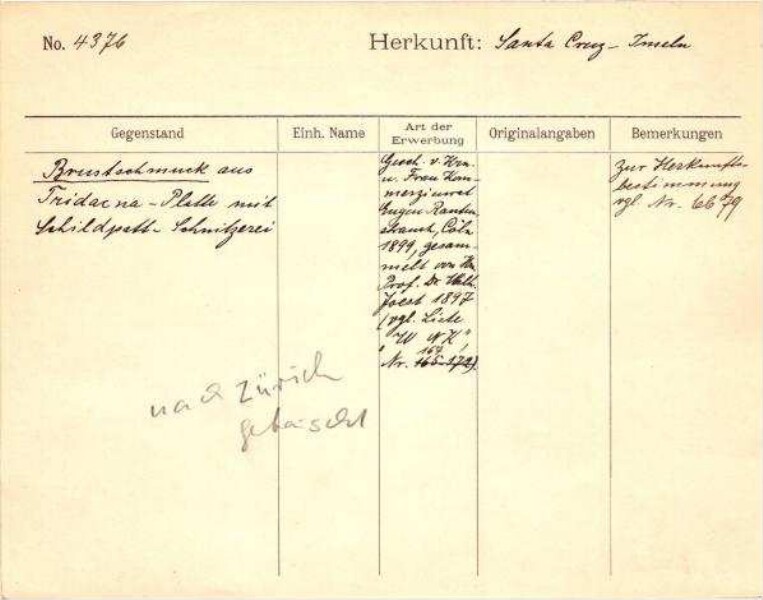 No. 4376
Herkunft: Santa Cruz-Inseln
Gegenstand
Einh. Name
Art der
Erwerbung
Originalangaben
Bemerkungen
Brustschmuck aus
Tridacna-Platte mit
Schildpatt-Schnitzerei
Gesch. v. Hrn.
u. Frau Kom-
merzienrat
Eugen Rauten-
strauch, Cöln
1899, gesam-
melt von Hn.
Prof. Dr. Wilh.
Joest 1897
(vgl. Liste
Nr. 165-172)
164
zur Herkunfts-
bestimmung
vgl. Nr. 6679
nach Zürich
getauscht